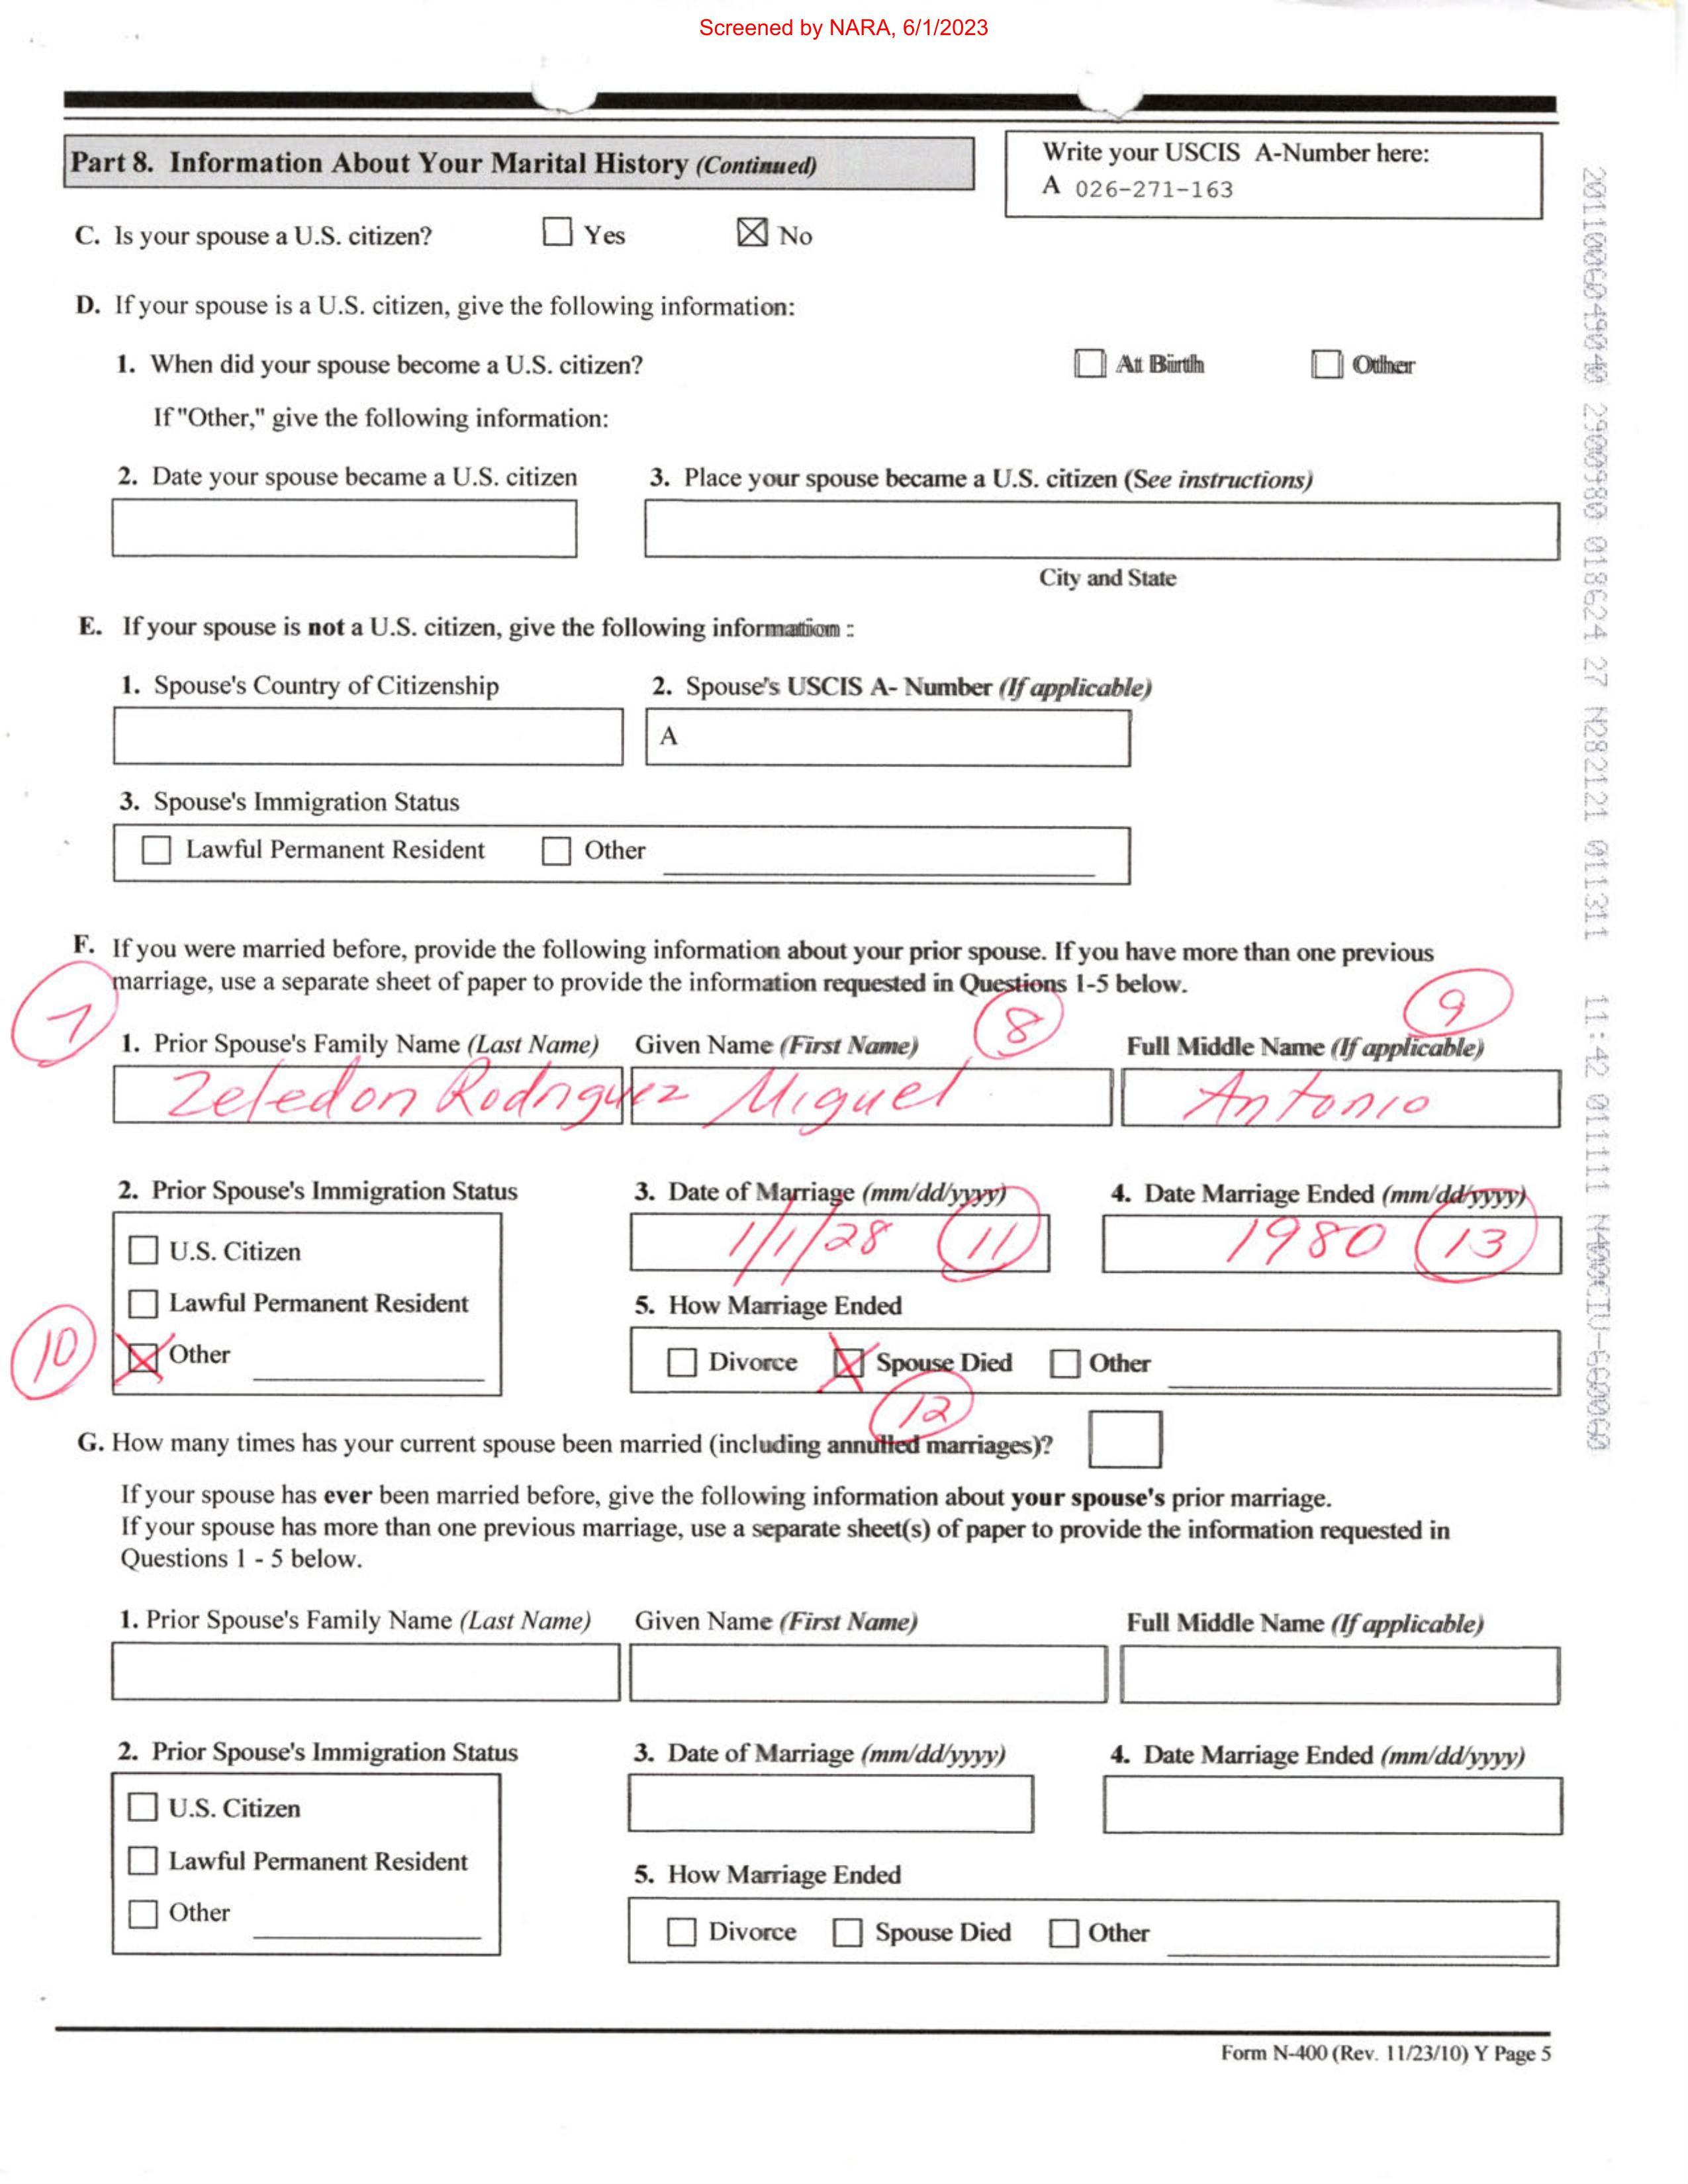 Screened by NARA, 6/1/2023
Part 8. Information About Your Marital History (Continued)
Write your USCIS A-Number here:
A 026-271-163
C. Is your spouse a U.S. citizen? Yes No
D. If your spouse is a U.S. citizen, give the following information:
1. When did your spouse become a U.S. citizen? At Birth Other
If "Other," give the following information:
2. Date your spouse became a U.S. citizen 3. Place your spouse became a U.S. citizen (See instructions)
City and State
E. If your spouse is not a U.S. citizen, give the following information :
1. Spouse's Country of Citizenship 2. Spouse's USCIS A- Number (If applicable)
A
3. Spouse's Immigration Status
Lawful Permanent Resident Other
F. If you were married before, provide the following information about your prior spouse. If you have more than one previous
marriage, use a separate sheet of paper to provide the information requested in Questions 1-5 below.
7 8 9
1. Prior Spouse's Family Name (Last Name) Given Name (First Name) Full Middle Name (If applicable)
Zeledon Rodriguez Miguel Antonio
2. Prior Spouse's Immigration Status 3. Date of Marriage (mm/dd/yyyy) 4. Date Marriage Ended (mm/dd/yyyy)
1/1/28 11 1980 13
U.S. Citizen
Lawful Permanent Resident 5. How Marriage Ended
10 Other Divorce Spouse Died Other
12
G. How many times has your current spouse been married (including annulled marriages)?
If your spouse has ever been married before, give the following information about your spouse's prior marriage.
If your spouse has more than one previous marriage, use a separate sheet(s) of paper to provide the information requested in
Questions 1 - 5 below.
1. Prior Spouse's Family Name (Last Name) Given Name (First Name) Full Middle Name (If applicable)
2. Prior Spouse's Immigration Status 3. Date of Marriage (mm/dd/yyyy) 4. Date Marriage Ended (mm/dd/yyyy)
U.S. Citizen
Lawful Permanent Resident 5. How Marriage Ended
Other Divorce Spouse Died Other
Form N-400 (Rev. 11/23/10) Y Page 5
2011006049040 2900980 018624 27 N282121 011311 11:42 011111 N400CIV-660060